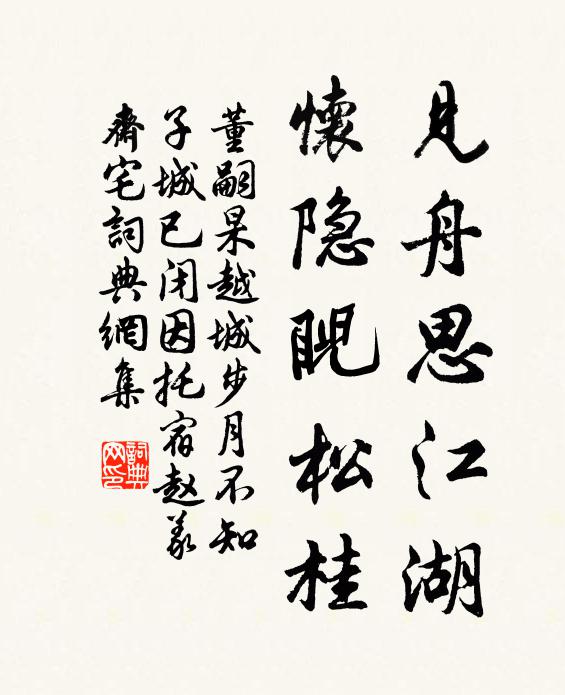 見舟思江湖
懷隐睨松桂
董嗣杲越城步月不知
子城已闭因托宿赵義
齋宅詞典網集
詞典
网印